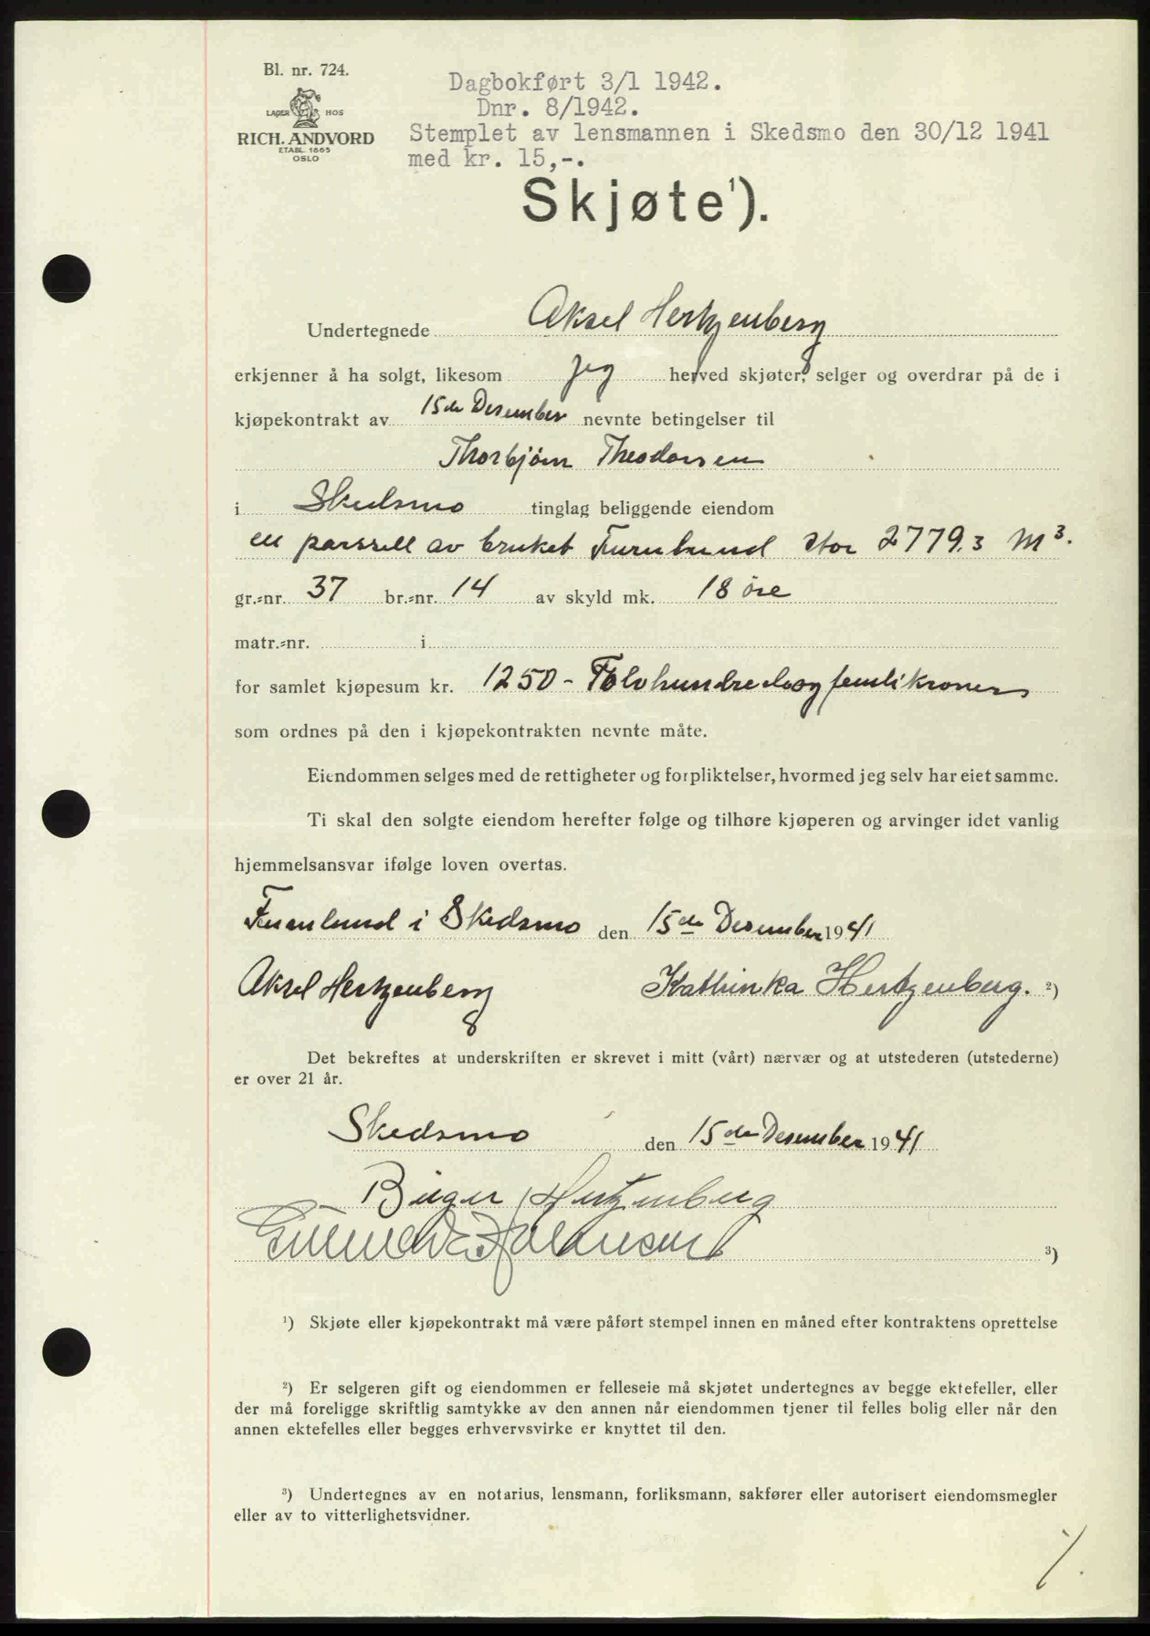 Bl. nr. 724.
LAGER HOS
RICH. ANDVORD
ETABL. 1865
OSLO
Dagbokført 3/1 1942.
Dnr. 8/1942.
Stemplet av lensmannen i Skedsmo den 30/12 1941
med kr. 15,-.
Skjøte¹).
Undertegnede Aksel Hertzenberg
erkjenner å ha solgt, likesom jeg herved skjøter, selger og overdrar på de i
kjøpekontrakt av 15de Desember nevnte betingelser til
Thorbjørn Theodorsen
i Skedsmo tinglag beliggende eiendom
en parsell av bruket Furulund stor 2779.3 M³.
gr.-nr. 37 br.-nr. 14 av skyld mk. 18 øre
matr.-nr. i
for samlet kjøpesum kr. 1250 - Tolvhundredeogfemtikroner
som ordnes på den i kjøpekontrakten nevnte måte.
Eiendommen selges med de rettigheter og forpliktelser, hvormed jeg selv har eiet samme.
Ti skal den solgte eiendom herefter følge og tilhøre kjøperen og arvinger idet vanlig
hjemmelsansvar ifølge loven overtas.
Furulund i Skedsmo den 15de Desember 1941
Aksel Hertzenberg Kathinka Hertzenberg. ²)
Det bekreftes at underskriften er skrevet i mitt (vårt) nærvær og at utstederen (utstederne)
er over 21 år.
Skedsmo den 15de Desember 1941
Birger Hertzenberg
Johansen
³)
¹) Skjøte eller kjøpekontrakt må være påført stempel innen en måned efter kontraktens oprettelse
²) Er selgeren gift og eiendommen er felleseie må skjøtet undertegnes av begge ektefeller, eller
der må foreligge skriftlig samtykke av den annen når eiendommen tjener til felles bolig eller når den
annen ektefelles eller begges erhvervsvirke er knyttet til den.
³) Undertegnes av en notarius, lensmann, forliksmann, sakfører eller autorisert eiendomsmegler
eller av to vitterlighetsvidner.